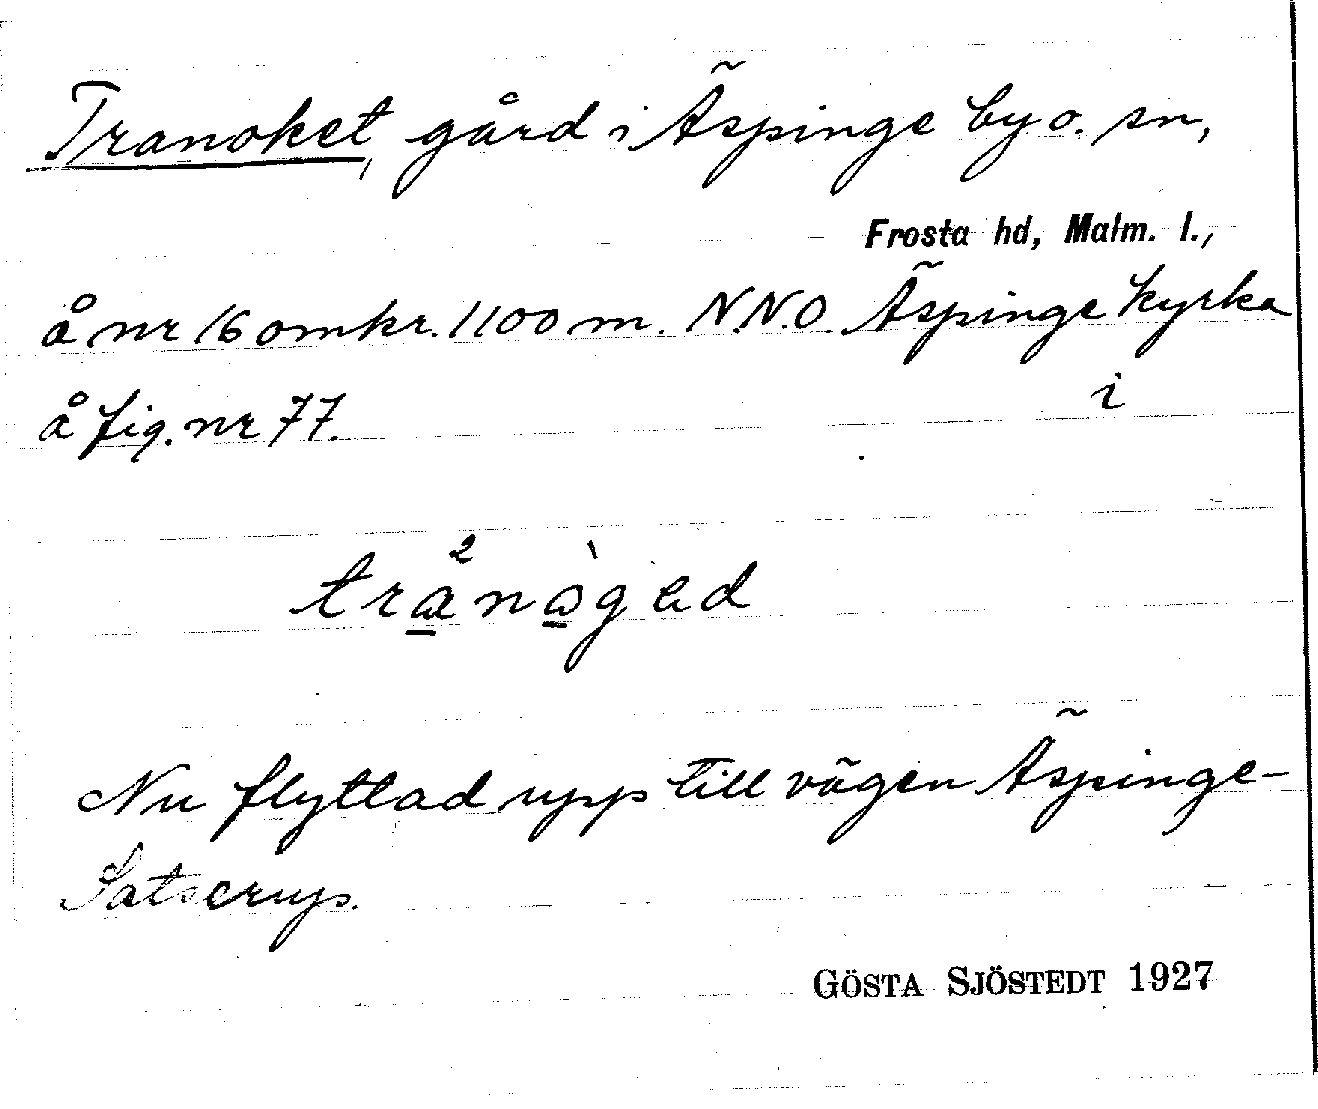 Tranoket, gård i Äspinge by o. sn,
Frosta hd, Malm. l.,
å nr 16 omkr. 1100 m. N.N.O. Äspinge kyrka
å fig. nr 77. i
Nu flyttad upp till vägen Äspinge-
Satserup.
GÖSTA SJÖSTEDT 1927